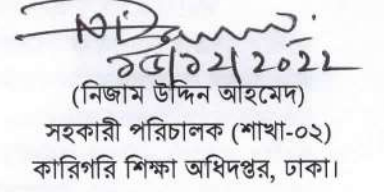 ১৫/১২/2022
(নিজাম উদ্দিন আহমেদ)
সহকারী পরিচালক (শাখা-০২)
কারিগরি শিক্ষা অধিদপ্তর, ঢাকা।